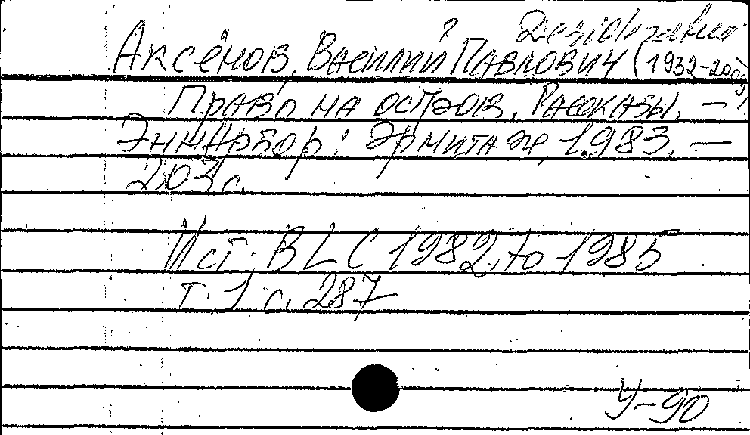 Desiderata
?
Аксёнов, Василий Павлович (1932-2009)
Право на остров. Рассказы. —
Энн Арбор: Эрмитаж, 1983. —
203 с.
Ист: BLC 1982 to 1985
т. 1 с. 287
У-90